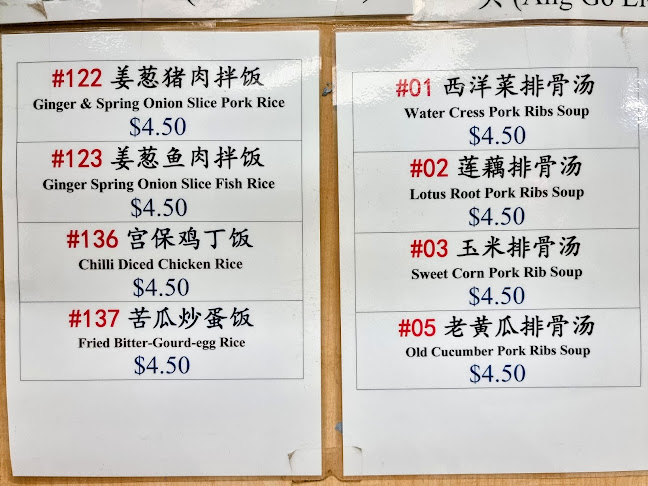 #122 姜葱猪肉拌饭
Ginger & Spring Onion Slice Pork Rice
$4.50
#123 姜葱鱼肉拌饭
Ginger Spring Onion Slice Fish Rice
$4.50
#136 宫保鸡丁饭
Chilli Diced Chicken Rice
$4.50
#137 苦瓜炒蛋饭
Fried Bitter-Gourd-egg Rice
$4.50
#01 西洋菜排骨汤
Water Cress Pork Ribs Soup
$4.50
#02 莲藕排骨汤
Lotus Root Pork Ribs Soup
$4.50
#03 玉米排骨汤
Sweet Corn Pork Rib Soup
$4.50
#05 老黄瓜排骨汤
Old Cucumber Pork Ribs Soup
$4.50